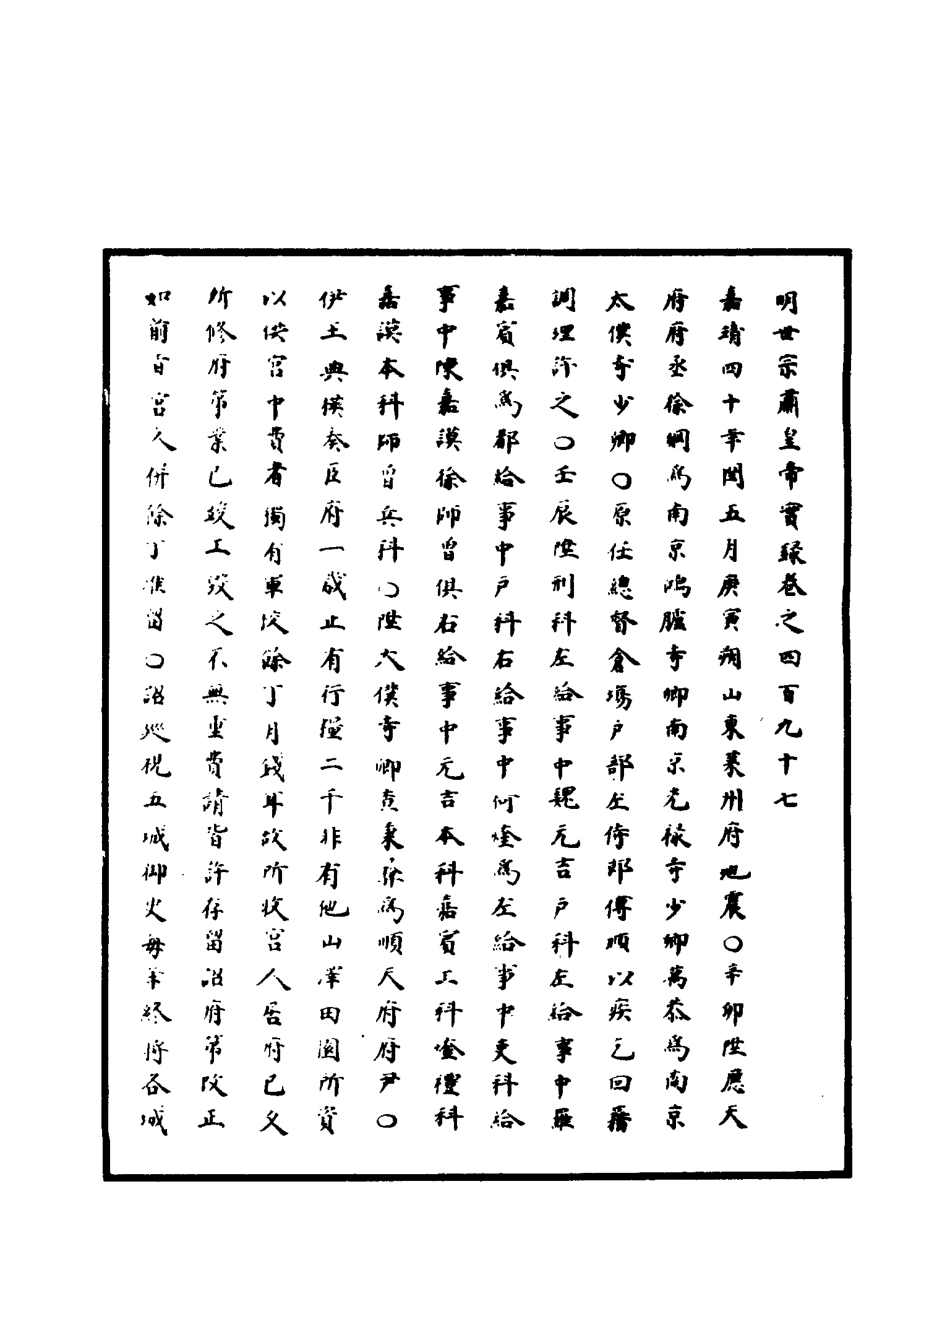 明世宗肅皇帝實録卷之四百九十七
嘉靖四十年閏五月庚寅朔山東萊州府地震〇辛卯陞應天
府府丞徐綱爲南京鴻臚寺卿南京光禄寺少卿萬恭爲南京
太僕寺少卿〇原任總督倉塲户部左侍郎傅頤以疾乞回籍
調理許之〇壬辰陞刑科左給事中魏元吉户科左給事中羅
嘉賓俱爲都給事中户科右給事中何煃爲左給事中吏科給
事中陳嘉謨徐師曾俱右給事中元吉本科嘉賓工科煃禮科
嘉謨本科師曾兵科〇陞太僕寺卿黄秉爲順天府府尹〇
伊王典楧奏臣府一歲止有行糧二千非有他山澤田園所資
以供宫中費者獨有軍校餘丁月錢耳故所收宫人居府已久
所修府第業已竣工毁之不無重費請皆許存留詔府第改正
如前旨宫人併餘丁准留〇詔廵視五城御史每年終將各城